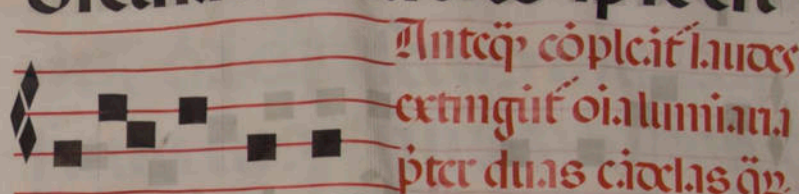 Anteq̃ cõpleãt laudes
extingũt oĩa luminaria
p̃ter duas cãdelas q̃